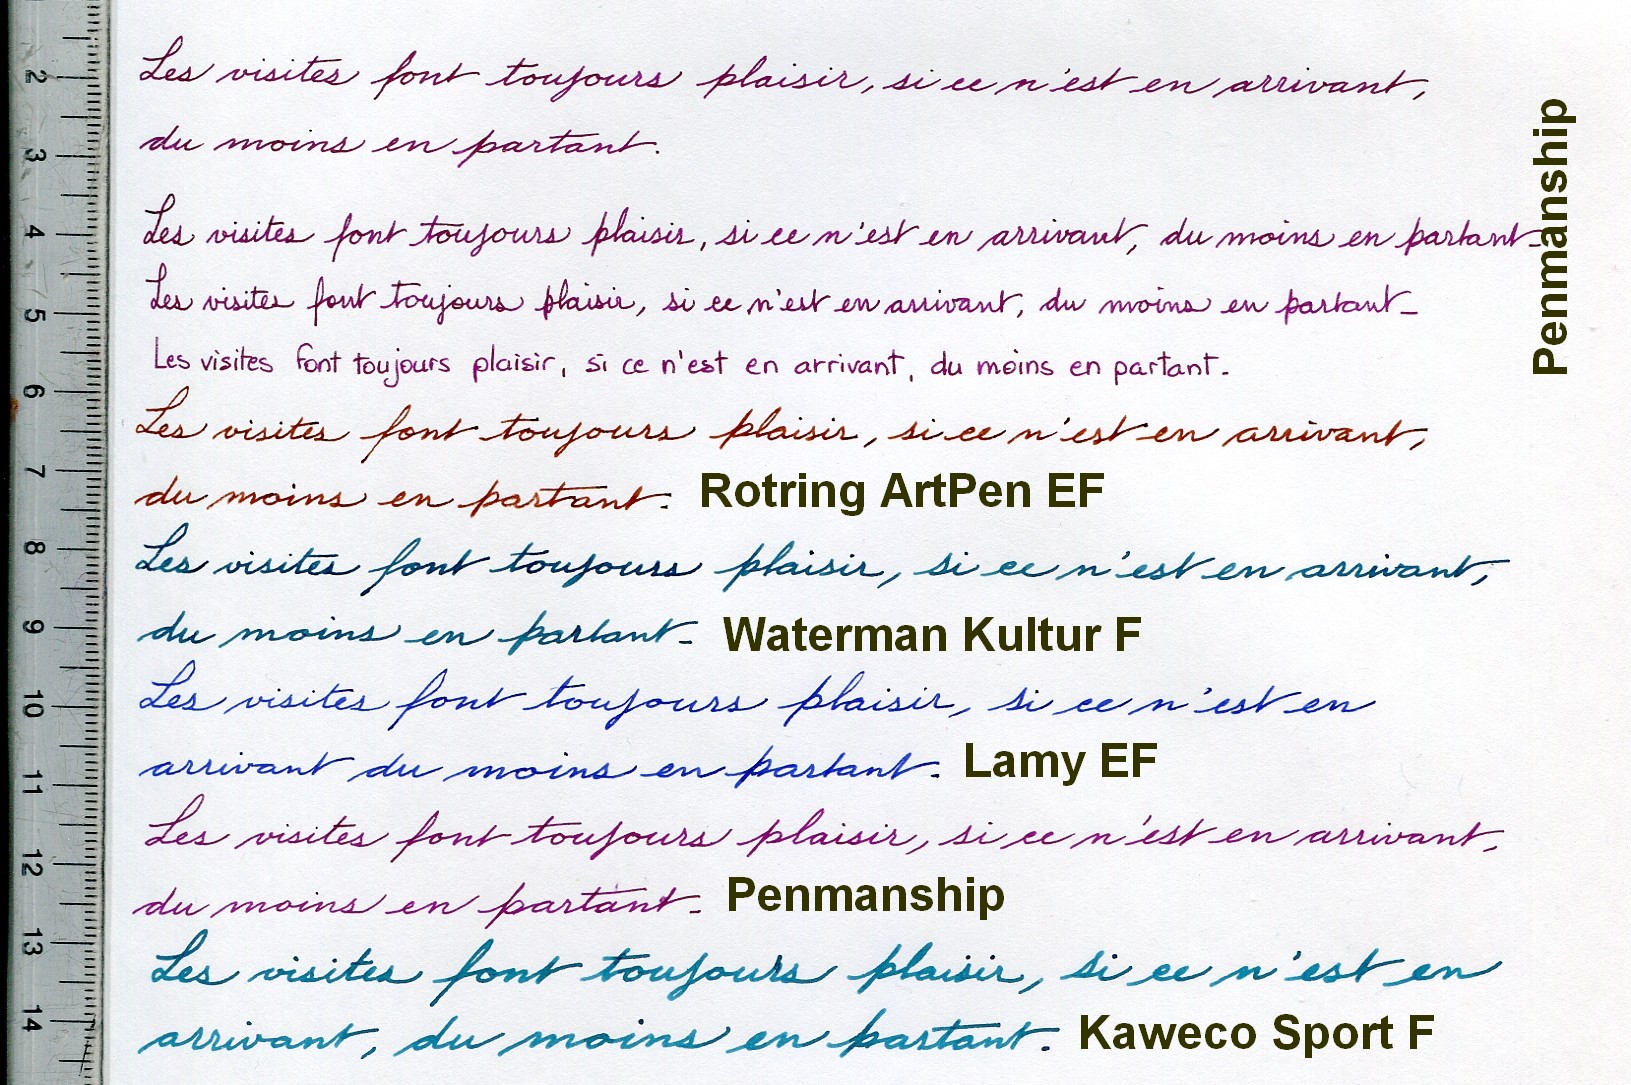 2
3
4
5
6
7
8
9
10
11
12
13
14
Les visites font toujours plaisir, si ce n'est en arrivant,
du moins en partant.
Les visites font toujours plaisir, si ce n'est en arrivant, du moins en partant.
Les visites font toujours plaisir, si ce n'est en arrivant, du moins en partant.
Les visites font toujours plaisir, si ce n'est en arrivant, du moins en partant.
Penmanship
Les visites font toujours plaisir, si ce n'est en arrivant,
du moins en partant. Rotring ArtPen EF
Les visites font toujours plaisir, si ce n'est en arrivant,
du moins en partant. Waterman Kultur F
Les visites font toujours plaisir, si ce n'est en
arrivant du moins en partant. Lamy EF
Les visites font toujours plaisir, si ce n'est en arrivant,
du moins en partant. Penmanship
Les visites font toujours plaisir, si ce n'est en
arrivant, du moins en partant. Kaweco Sport F